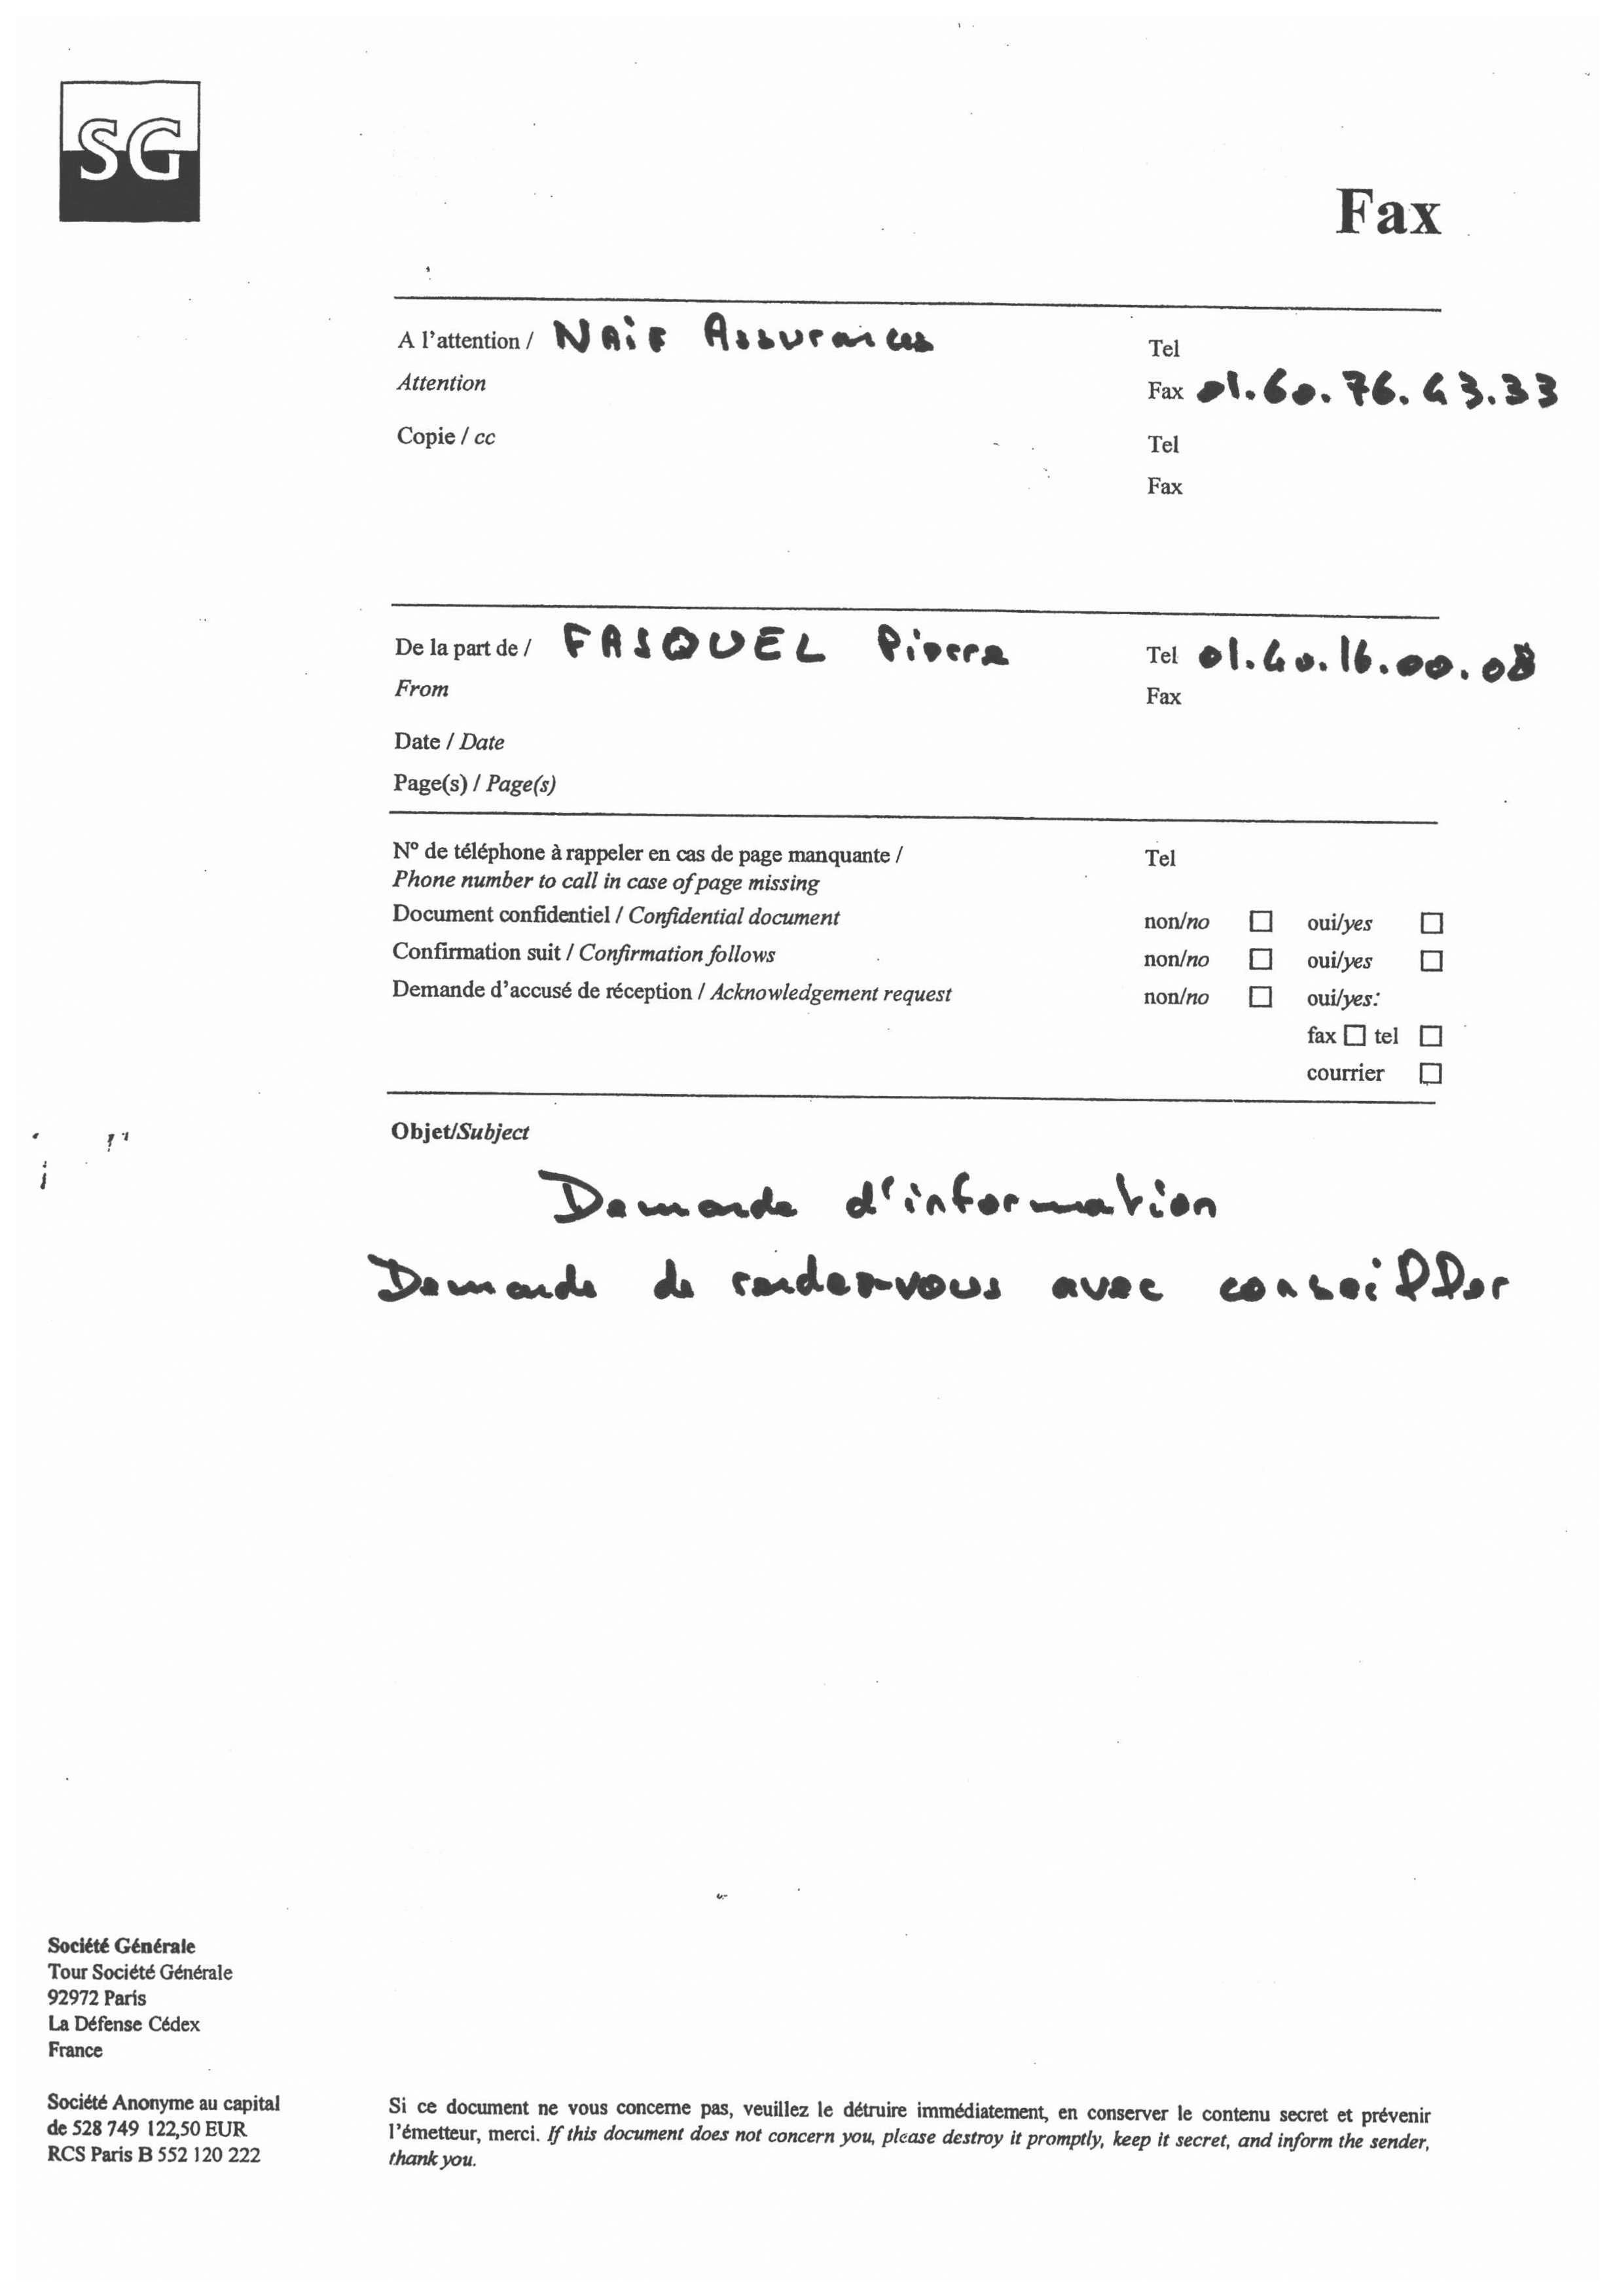 SG
Fax
A l'attention / NAiF Assurances
Tel
Attention
Fax 01.60.76.43.33
Copie / cc
Tel
Fax
De la part de / FASQUEL Pierre
Tel 01.40.16.00.08
From
Fax
Date / Date
Page(s) / Page(s)
N° de téléphone à rappeler en cas de page manquante /
Tel
Phone number to call in case of page missing
Document confidentiel / Confidential document non/no ☐ oui/yes ☐
Confirmation suit / Confirmation follows non/no ☐ oui/yes ☐
Demande d'accusé de réception / Acknowledgement request non/no ☐ oui/yes:
fax ☐ tel ☐
courrier ☐
Objet/Subject
Demande d'information
Demande de rendez-vous avec conseiller
Société Générale
Tour Société Générale
92972 Paris
La Défense Cédex
France
Société Anonyme au capital
de 528 749 122,50 EUR
RCS Paris B 552 120 222
Si ce document ne vous concerne pas, veuillez le détruire immédiatement, en conserver le contenu secret et prévenir
l'émetteur, merci. If this document does not concern you, please destroy it promptly, keep it secret, and inform the sender,
thank you.